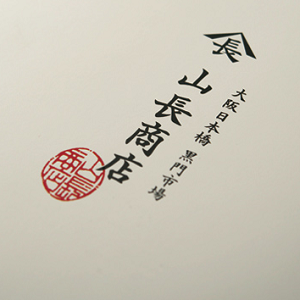 長
大阪日本橋 黒門市場
山長商店